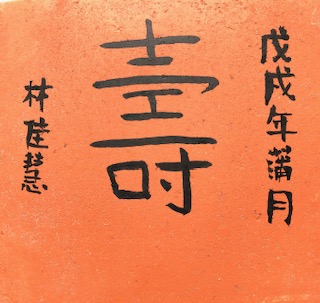 戊戌年蒲月
壽
林佳慧